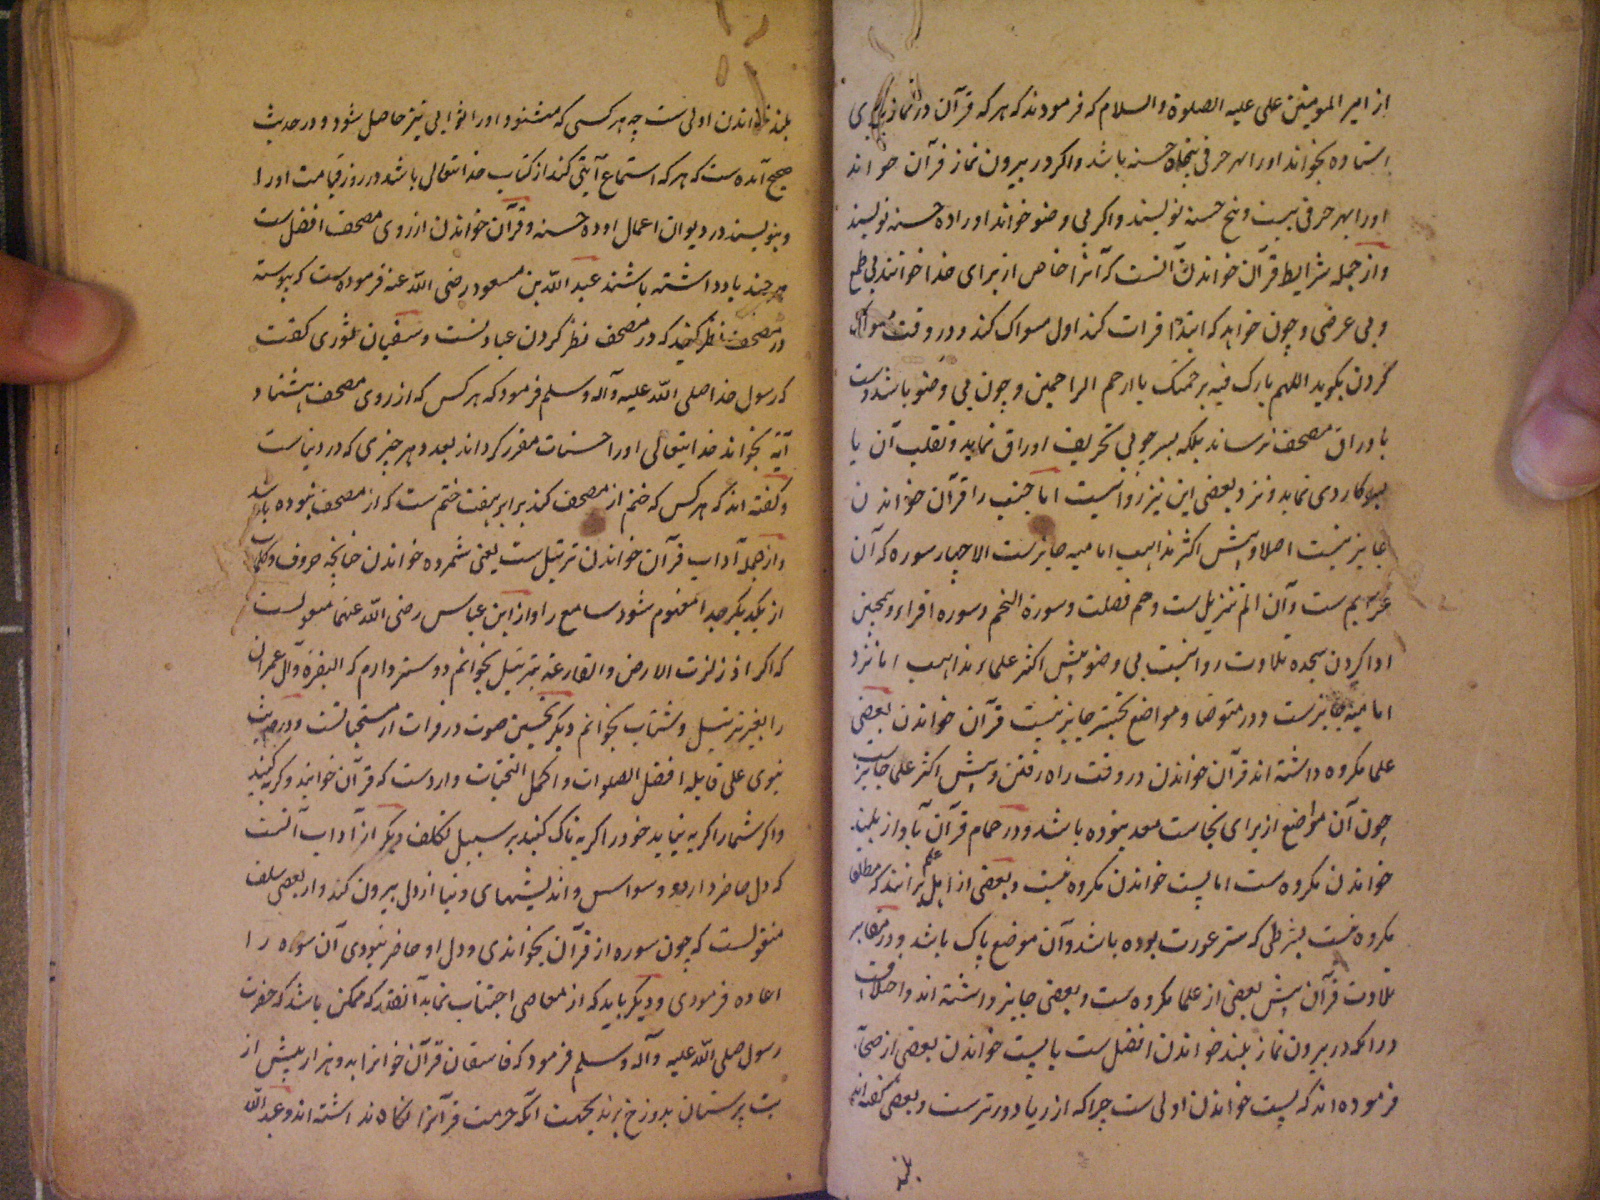 از امیر المومنین علی علیه الصلوة والسلام که فرمودند که هرکه قرآن در نماز بر پای
استاده بخواند اورا بهر حرفی پنجاه حسنه باشد واکر در بیرون نماز قرآن خواند
اورا بهر حرفی بیست و پنج حسنه نویسند واکر بی وضو خواند اورا ده حسنه نویسند
واز جمله شرایط قرآن خواندن آنست که آنرا خاص از برای خدا خوانند بی طمع
و بی عرضی و چون خواهد که ابتدا قرات کند اول مسواک کند و در وقت مسواک
کردن بکوید اللهم بارک فیه برحمتک یا ارحم الراحمین و چون بی وضو باشد دست
باوراق مصحف نرساند بلکه بسر چوبی تحریف اوراق نماید و تقلیب آن یا
بسر کاردی نماید و نزد بعضی این نیز روا نیست اما جنب را قرآن خواندن
جایز نیست اصلا و پیش اکثر مذاهب امامیه جایز ست الا چهار سوره که آن
عزایم ست و آن الم تنزیل ست و حم فصلت و سورة النجم و سوره اقراء و همچنین
ادا کردن سجده تلاوت روا نیست بی وضو پیش اکثر علماء مذاهب اما نزد
امامیه جایز ست و در متوضا و مواضع نجسته جایز نیست قرآن خواندن بعضی
علما مکروه داشته اند قرآن خواندن در وقت راه رفتن و پیش اکثر علما جایز ست
چون آن مواضع از برای نجاست معد نبوده باشد و در حمام قرآن بآواز بلند
خواندن مکروه ست اما پست خواندن مکروه نیست و بعضی از اهل علم برانند که مطلقا
مکروه نیست بشرطی که ستر عورت بوده باشد وآن موضع پاک باشد و در مقابر
تلاوت قرآن پیش بعضی از علما مکروه ست و بعضی جایز داشته اند و اختلاف
در انکه در بیرون نماز بلند خواندن افضل ست یا پست خواندن بعضی از صحابه
فرموده اند که پست خواندن اولی ست چرا که از ریا دورتر ست و بعضی گفته اند
بلند
بلند خواندن اولی ست چه هر کسی که میشنود اورا ثوابی نیز حاصل شود و در حدیث
صحیح آمده ست که هرکه استماع آیتی کند از کتاب خدایتعالی باشد در روز قیامت اورا
و بنویسند در دیوان اعمال او ده حسنه و قرآن خواندن از روی مصحف افضل ست
هر چند یاد داشته باشند عبد الله بن مسعود رضی الله عنه فرموده ست که پیوسته
در مصحف نظر کنید که در مصحف نظر کردن عبادتست و سفیان ثوری کفت
که رسول خدا صلی الله علیه وآله وسلم فرمود که هر کس که از روی مصحف هشتاد
آیه بخواند خدایتعالی اورا حسنات مقرر کرداند بعدد هر چیزی که در دنیاست
و کفته اند که هر کس که ختم از مصحف کند برابر هفت ختم ست که از مصحف نبوده باشد
واز جمله آداب قرآن خواندن ترتیل ست یعنی شمرده خواندن چنانچه حروف و کلمات
از یکدیکر جدا مفهوم شود سامع را و از ابن عباس رضی الله عنهما منقولست
که اکر اذا زلزلت الارض و القارعة بترتیل بخوانم دوستر دارم که البقرة و آل عمران
را بغیر ترتیل و شتاب بخوانم دیکر تحسین صوت در قرات از مستحباتست و در حدیث
نبوی علی قایله افضل الصلوات و اکمل التحیات وارد ست که قرآن خوانید و کریه کنید
واکر شما را کریه نیاید خود را کریه ناک کنید بر سبیل تکلف دیکر از آداب آنست
که دل حاضر دارد و وسواس و اندیشهای دنیا از دل بیرون کند و از بعضی سلف
منقولست که چون سوره از قرآن بخواندی و دل او حاضر نبودی آن سوره را
اعاده فرمودی و دیکر باید که از معاصی اجتناب نماید آنقدر که ممکن باشد که حضرت
رسول صلی الله علیه وآله وسلم فرمود که فاسقان قرآن خوانرا بدو هزار پیش از
بت پرستان بدوزخ برند بجهت آنکه حرمت قرآنرا نکاه نداشته اند و عبد الله